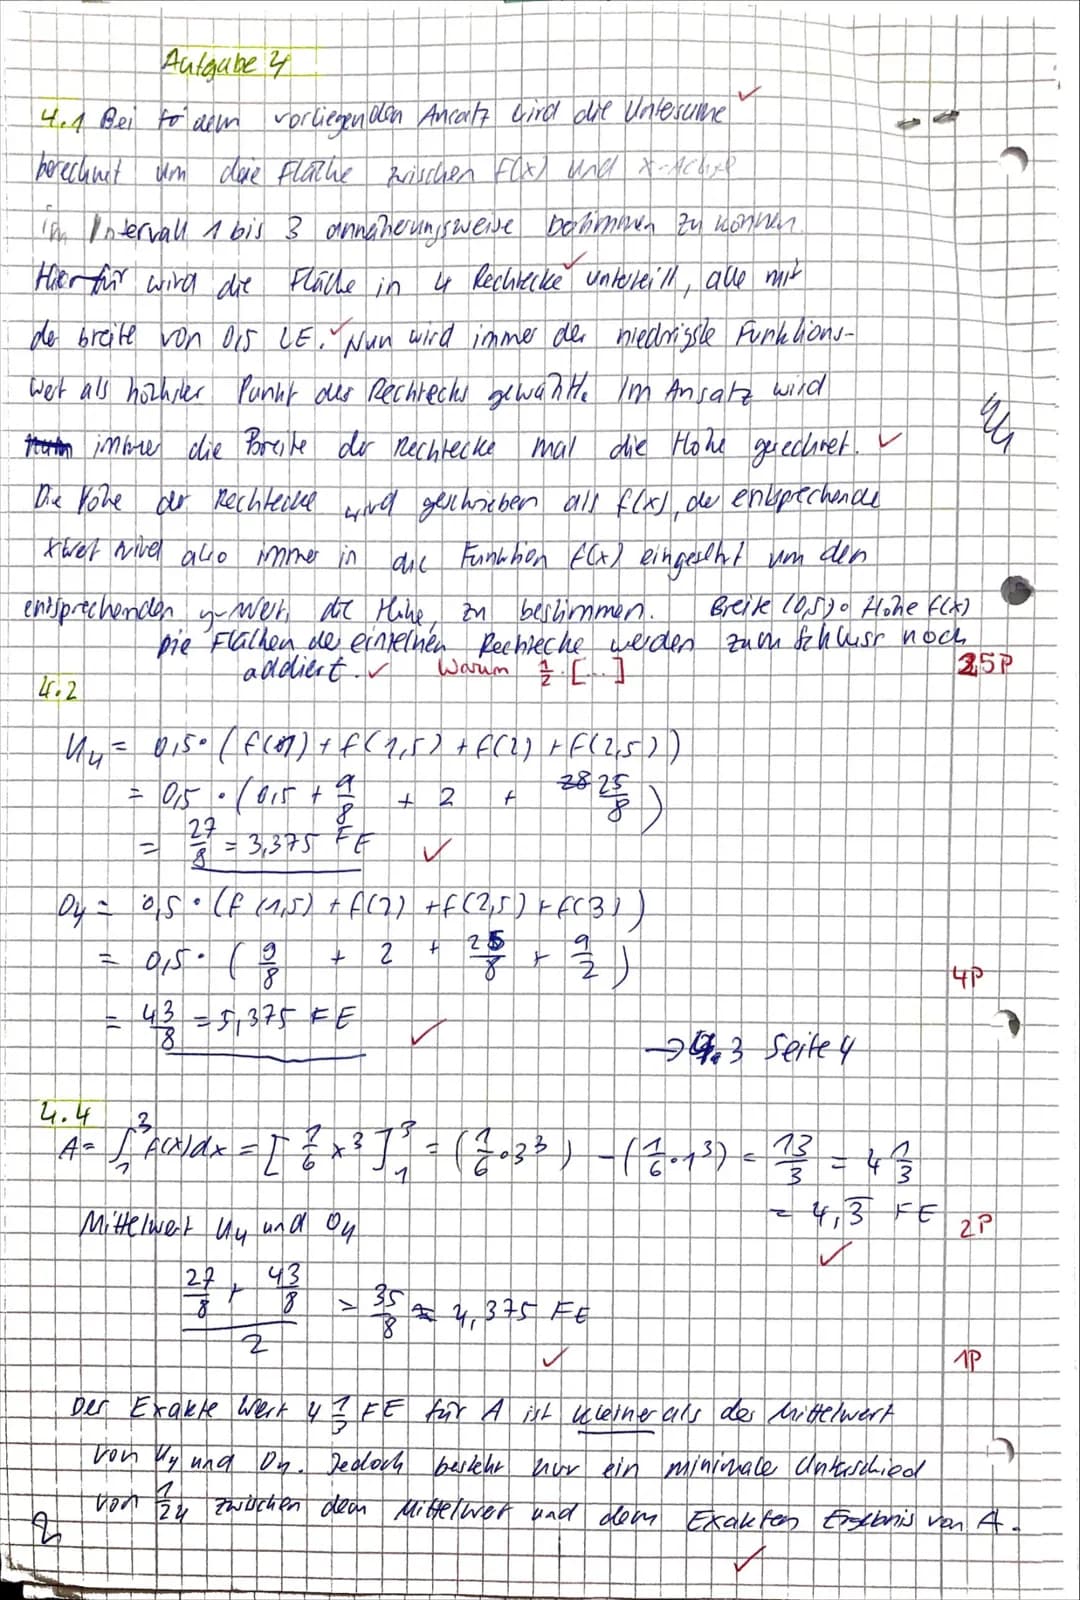 Aufgabe 4
4.1 Bei dem vorliegenden Ansatz wird die Untersume ✓
berechnet um die Fläche zwischen f(x) und x-Achse
im Intervall 1 bis 3 annäherungsweise bestimmen zu können.
Hierfür wird die Fläche in 4 Rechtecke ✓ unterteilt, alle mit
der breite von 0,5 LE. ✓ Nun wird immer der niedrigste Funktions-
wert als höchster Punkt des Rechtecks gewählt. Im Ansatz wird
immer die Breite der Rechtecke mal die Höhe gerechnet. ✓
U4
Die Höhe der Rechtecke wird geschrieben als f(x), der entsprechende
xwert wird also immer in die Funktion f(x) eingesetzt um den
entsprechenden y-Wert, die Höhe, zu bestimmen. Breite (0,5) · Höhe f(x)
Die Flächen der einzelnen Rechtecke werden zum Schluss noch
addiert. ✓ Warum 1/2 · [...] 5P
4.2
U4 = 0,5 · (f(1) + f(1,5) + f(2) + f(2,5))
= 0,5 · (0,5 + 9/8 + 2 + 25/8)
= 27/8 = 3,375 FE ✓
O4 = 0,5 · (f(1,5) + f(2) + f(2,5) + f(3))
= 0,5 · (9/8 + 2 + 25/8 + 9/2) 4P
= 43/8 = 5,375 FE ✓
→ 4.3 Seite 4
4.4
A = ∫₁³ f(x)dx = [1/6 x³]₁³ = (1/6 · 3³) - (1/6 · 1³) = 13/3 = 4 1/3
= 4,3̅ FE ✓ 2P
Mittelwert U4 und O4
(27/8 + 43/8)/2 = 35/8 = 4,375 FE ✓ 1P
Der Exakte Wert 4 1/3 FE für A ist kleiner als der Mittelwert
von U4 und O4. Jedoch besteht nur ein minimale Unterschied
von 1/24 zwischen dem Mittelwert und dem Exakten Ergebnis von A. ✓
2